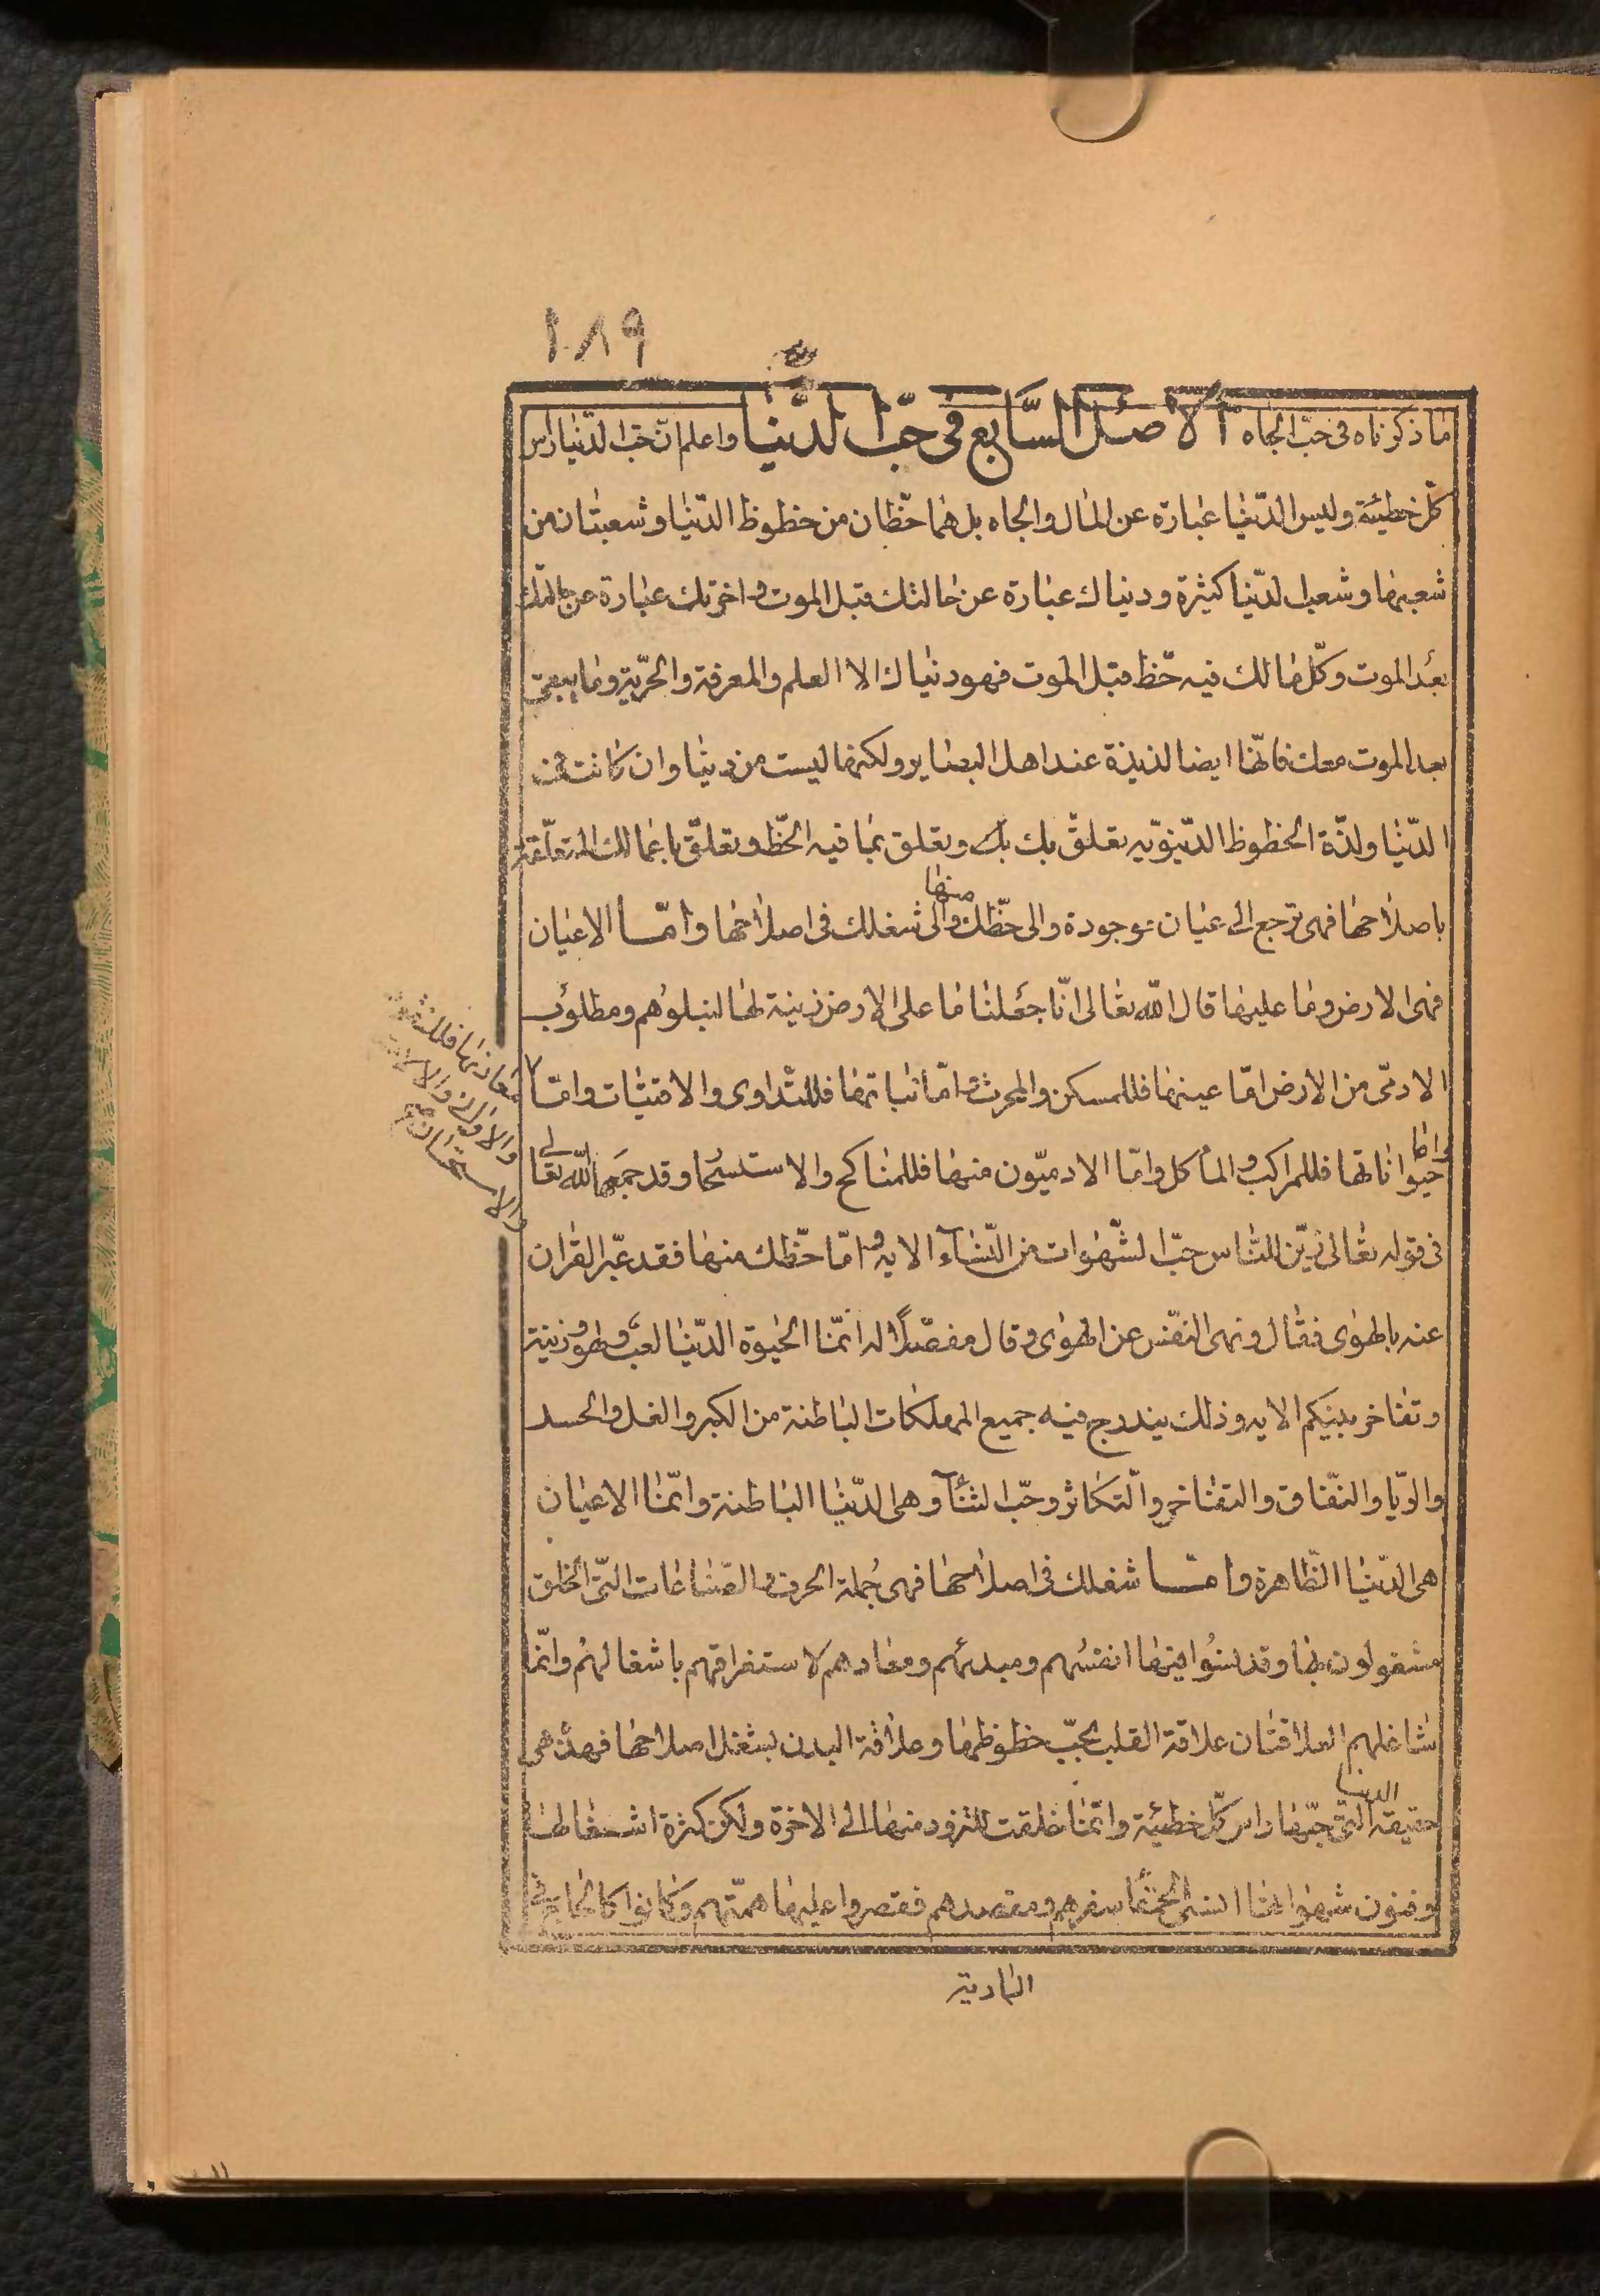 ١٨٩
ما ذكرناه فى حبّ الجاه الاصل السّابع فى حبّ الدّنيا واعلم انّ حبّ الدّنيا راس
كلّ خطيئة وليس الدّنيا عبارة عن المال والجاه بل هما حظّان من حظوظ الدّنيا وشعبتان من
شعبها وشعب الدّنيا كثيرة ودنياك عبارة عن حالتك قبل الموت واخرتك عبارة عن حالتك
بعد الموت وكلّ ما لك فيه حظّ قبل الموت فهو دنياك الا العلم والمعرفة والحرّية وما يبقى
بعد الموت معك فانّها ايضا لذيذة عند اهل البصاير ولكنها ليست من دنيا وان كانت فى
الدّنيا ولذّة الحظوظ الدّنيوّيه تعلّق بك بك وتعلق بما فيه الحظّ وتعلّق باعمالك المتعلّقة
باصلاحها فهى ترجع الى عيان موجودة والى حظّك منها والى شغلك فى اصلاحها وامّا الاعيان
فهى الارض وما عليها قال الله تعالى انّا جعلنا ما على الارض زينة لها لنبلوهم ومطلوب
الادمّى من الارض امّا عينها فللمسكن والمحرث وامّا نباتها فللتداوى والاقتيات وامّا
معادنها فللنقود
والاوانى والالات
والاستحسان
وامّا حيواناتها فللمراكب والمأكل وامّا الادميّون منها فللمناكح والاستسخا وقد جمعها الله تعالى
فى قوله تعالى زيّن للنّاس حبّ الشّهوات من النّساء الايه وامّا حظّك منها فقد عبّر القران
عنه بالهوى فقال ونهى النّفس عن الهوى وقال مفصّلاً له انّما الحيوة الدّنيا لعب ولهو وزينة
وتفاخر بينكم الايه وذلك يندرج فيه جميع المهلكات الباطنة من الكبر والغل والحسد
والريّا والنّفاق والتفاخر والتّكاثر وحبّ الثنآء وهى الدّنيا الباطنة وانّما الاعيان
هى الدّنيا الظّاهرة وامّا شغلك فى اصلاحها فهى جُملة الحرف والصّناعات التّى الخلق
مشغولون بها وقد نسُوا فيها انفسُهم ومبدئهم ومعادهم لاستغراقهم باشغالهُم وانّما
شاغلهم العلاقتان علاقة القلب بحبّ حظوظها وعلاقة البدن بشغل اصلاحها فهذه هى
حقيقة الدنيا التّى حبّها راس كلّ خطيئة وانّما خلقت للتزود منها الى الاخرة ولكن كثرة اشغالها
وفنون شهواتها انست الحمقا سفرهم ومقصدهم فقصروا عليها همّتهم وكانوا كالحاج فى
البادية